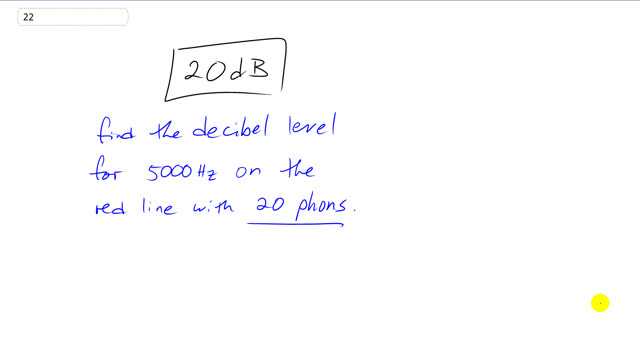 22
20dB
find the decibel level
for 5000 Hz on the
red line with 20 phons.